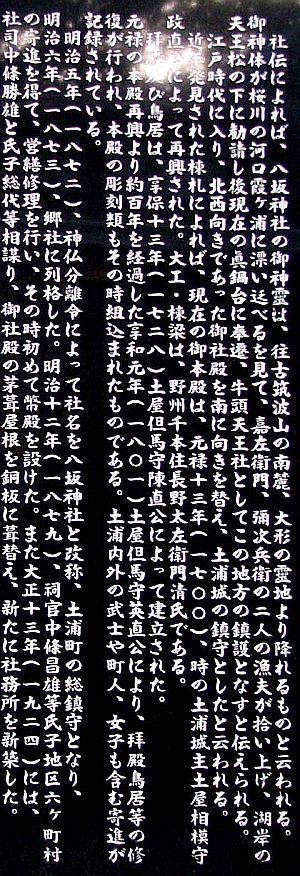 社伝によれば、八坂神社の御神霊は、往古筑波山の南麓、大形の霊地より降れるものと云われる。
御神体が桜川の河口霞ヶ浦に漂い迯べるを見て、嘉左衛門、彌次兵衛の二人の漁夫が拾い上げ、湖岸の
天王松の下に勧請し後現在の真鍋台に奉遷、牛頭天王社としてこの地方の鎮護となすと伝えられる。
江戸時代に入り、北西向きであった御社殿を南に向きを替え、土浦城の鎮守としたと云われる。
近年発見された棟札によれば、現在の御本殿は、元禄十三年(一七〇〇)、時の土浦城主土屋相模守
政直公によって再興された。大工・棟梁は、野州千本住長野太左衛門清氏である。
拝殿及び鳥居は、享保十三年(一七二八)土屋但馬守陳直公によって建立された。
元禄の本殿再興より約百年を経過した享和元年(一八〇一)土屋但馬守英直公により、拝殿鳥居等の修
復が行われ、本殿の彫刻類もその時組込まれたものである。土浦内外の武士や町人、女子も含む寄進が
記録されている。
明治五年(一八七二)、神仏分離令によって社名を八坂神社と改称、土浦町の総鎮守となり、
明治六年(一八七三)、郷社に列格した。明治十二年(一八七九)、祠官中條昌雄等氏子地区六ヶ町村
の寄進を得て、営繕修理を行い、その時初めて幣殿を設けた。また大正十三年(一九二四)には、
社司中條勝雄と氏子総代等相謀り、御社殿の茅葺屋根を銅板に葺替え、新たに社務所を新築した。